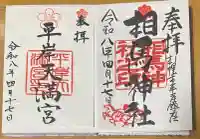 奉拝
相馬神社
令和八年四月十七日
奉拝
平岸天満宮
令和八年四月十七日